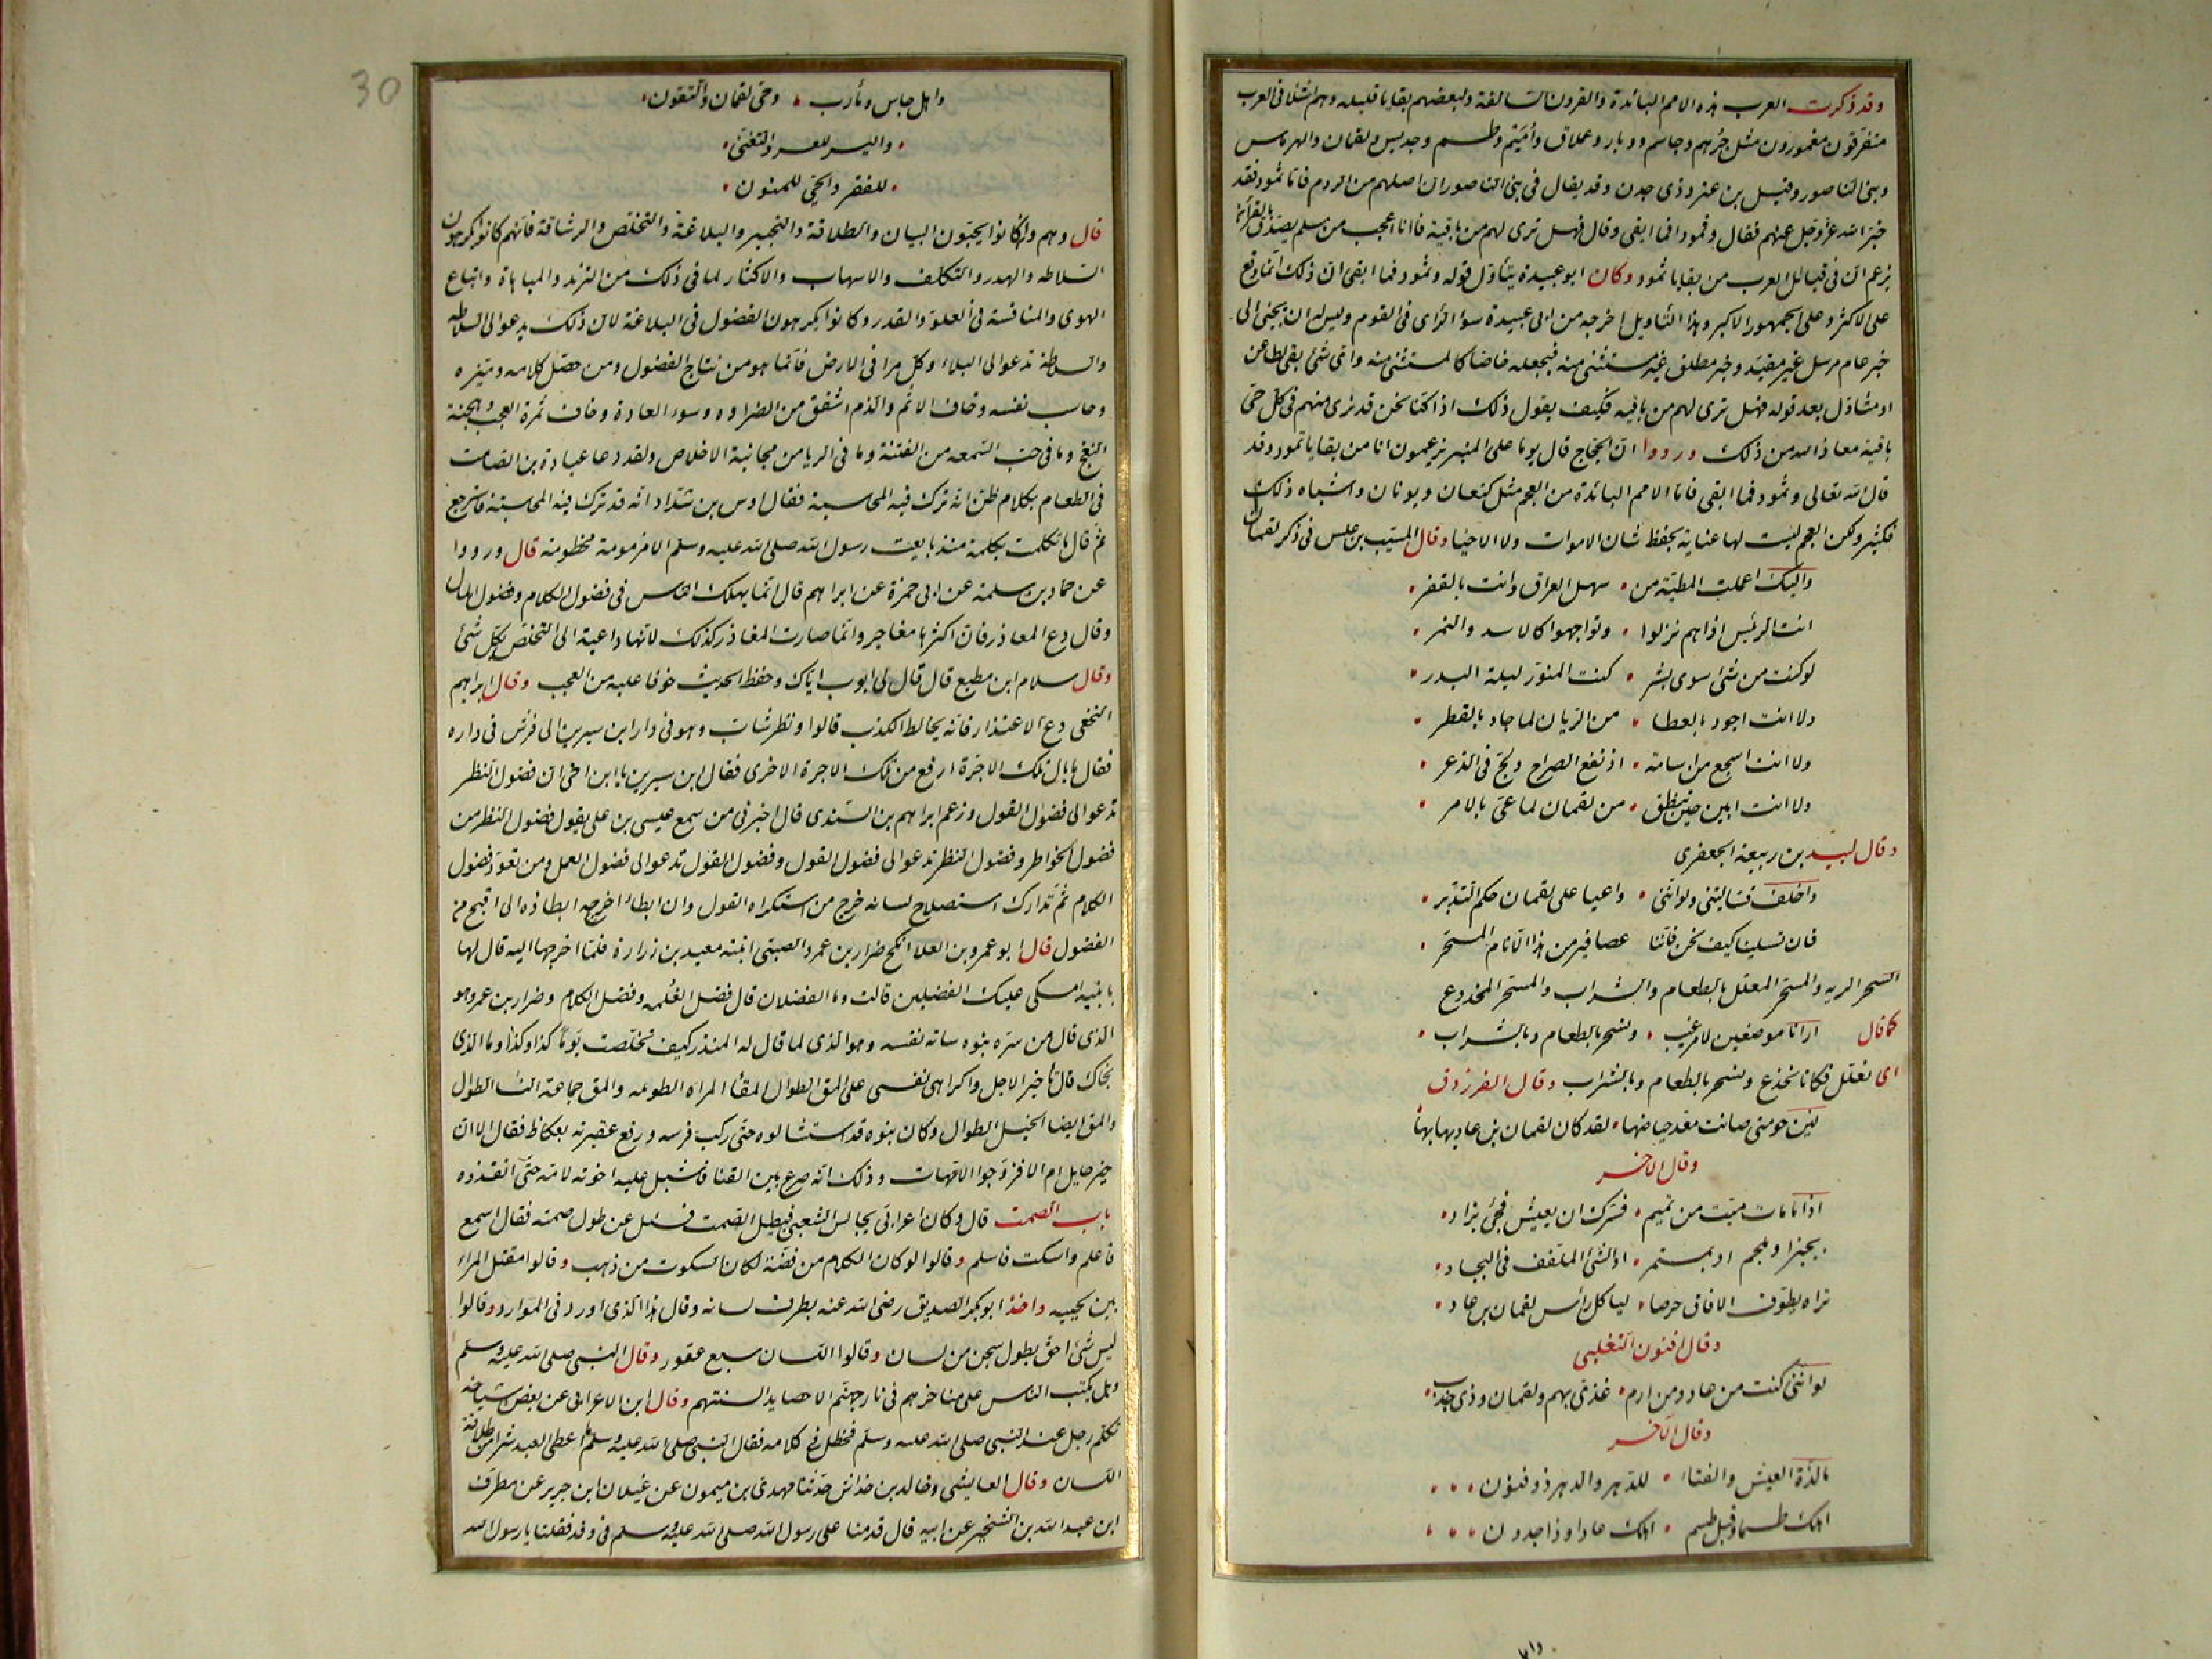 وقد ذكرت العرب هذه الامم البائدة والقرون السالفة ولبعضهم بقايا قليله وهم اشلا فى العرب
متفرقون مغمورون مثل جرهم وجاسم ووبار وعملاق واميم وطسم وجديس ولقمان والهرماس
وبنى الناصور وقيل بن عنز وذى جدن وقد يقال فى بنى الناصور ان اصلهم من الروم فاما ثمود فقد
خبر الله عز وجل عنهم فقال وثمودا فما ابقى وقال فهل ترى لهم من باقية فانا اعجب من مسلم يصدق بالقرآن
يزعم ان فى قبائل العرب من بقايا ثمود وكان ابو عبيدة يتأول قوله وثمود فما ابقى ان ذلك انما وقع
على الاكثر وعلى الجمهور الاكبر وهذا التأويل اخرجه من ابى عبيدة سوا الرأى فى القوم وليس له ان يجئ الى
خبر عام مرسل غير مقيد وخبر مطلق غير مستثنى منه فيجعله خاصا كالمستثنى منه واى شئ بقى لطاعن
او متأول بعد قوله فهل ترى لهم من باقيه فكيف يقول ذلك اذا كنا نحن قد نرى منهم فى كل حى
باقية معاذ الله من ذلك ورووا ان الحجاج قال يوما على المنبر يزعمون انا من بقايا ثمود وقد
قال الله تعالى وثمود فما ابقى فاما الامم البائدة من العجم مثل كنعان ويونان واشباه ذلك
فكثير ولكن العجم ليست لها عناية بحفظ شان الاموات ولا الاحيا وقال المسيب بن علس فى ذكر لقمان
واليك اعملت المطية من • سهل العراق وانت بالقفر •
انت الرئيس اذا هم نزلوا • وتواجهوا كالاسد والنمر •
لو كنت من شئ سوى بشر • كنت المنور ليلة البدر •
ولا انت اجود بالعطا • من الريان لما جاد بالقطر •
ولا انت اشجع من اسامة • اذ نقع الصراخ ولج فى الذعر •
ولا انت ابين حين تنطق • من لقمان لما عى بالامر •
وقال لبيد بن ربيعة الجعفرى
واخلف قسا ليتنى ولو اننى • واعيا على لقمان حكم التدبر •
فان تسلينا كيف نحن فاننا عصافير من هذا الانام المسحر •
السحر الريه والمسحر المعلل بالطعام والشراب والمسحر المخدوع
كما قال ارانا موضعين لامر غيب • ونسحر بالطعام وبالشراب •
اى نعلل فكانا نخدع ونسحر بالطعام وبالشراب وقال الفرزدق
لئن حومتى صانت معد حياضها • لقد كان لقمان بن عاد يهابها
وقال الاخر
اذا ما مات ميت من تميم • فسرك ان يعيش فجئ بزاد •
بخبز او بلحم او بتمر • او الشئ الملفف فى البجاد •
تراه يطوف الافاق حرصا • ليأكل رأس لقمان بن عاد •
وقال افنون التغلبى
لو اننى كنت من عاد ومن ارم • غذى بهم ولقمان وذى جدن •
وقال الاخر
ما لذة العيش والفتاء • للدهر والدهر ذو فنون • • •
اهلك طسما وقبل طسم • اهلك عادا وذا جدون • • •
واهل
واهل جاس ومأرب • وحى لقمان والتقون •
• واليسر للعسر والتغنى •
• للفقر والحى للمنون •
قال وهم وان كانوا يحبون البيان والطلاقة والتحبير والبلاغة والتخلص والرشاقة فانهم كانوا يكرهون
السلاطه والهدر والتكلف والاسهاب والاكثار لما فى ذلك من التزيد والمباهاة واتباع
الهوى والمنافسة فى العلو والقدر وكانوا يكرهون الفضول فى البلاغة لان ذلك يدعو الى السلاطه
والسلاطة تدعو الى البلاء وكل مرا فى الارض فانما هو من نتاج الفضول ومن حصل كلامه وميزه
وحاسب نفسه وخاف الاثم والذم اشفق من الضراوه وسوء العادة وخاف ثمرة العجب وهجنة
النفج وما فى حب السمعه من الفتنة وما فى الريا من مجانبة الاخلاص ولقد دعا عبادة بن الصامت
فى الطعام بكلام ظن انه ترك فيه المحاسبة فقال اوس بن شداد انه قد ترك فيه المحاسبة فاسترجع
ثم قال ما تكلمت بكلمة منذ بايعت رسول الله صلى الله عليه وسلم الا مزمومة مخطومة قال ورووا
عن حماد بن سلمة عن ابى حمزة عن ابراهم قال انما يهلك الناس فى فضول الكلام وفضول المال
وقال دع المعاذر فان اكثرها مفاجر وانما صارت المعاذر كذلك لانها داعية الى التخلص بكل شئ
وقال سلام ابن مطيع قال قال لى ايوب اياك وحفظ الحديث خوفا عليه من العجب وقال ابراهيم
النخعى دع الاعتذار فانه يخالط الكذب قالوا ونظر شاب وهو فى دار ابن سيرين الى فرش فى داره
فقال ما بال تلك الاجرة ارفع من تلك الاجرة الاخرى فقال ابن سيرين يا ابن اخى ان فضول النظر
تدعو الى فضول القول وزعم ابراهم بن السندى قال اخبرنى من سمع عيسى بن على يقول فضول النظر من
فضول الخواطر وفضول النظر تدعو الى فضول القول وفضول القول تدعو الى فضول العمل ومن تعود فضول
الكلام ثم تدارك استصلاح لسانه خرج من استكراه القول وان ابطا اخرجه ابطاؤه الى اقبح من
الفضول قال ابو عمرو بن العلا انكح ضرار بن عمرو الضبى ابنته معبد بن زرارة فلما اخرجها اليه قال لها
يا بنيه امسكى عليك الفضلين قالت وما الفضلان قال فضل الغلمه وفضل الكلام وضرار بن عمرو هو
الذى قال من سره بنوه ساته نفسه وهو الذى لما قال له المنذر كيف تخلصت يوم كذا وكذا وما الذى
نجاك قال تأخير الاجل واكراهى نفسى على المق الطوال المقا المراه الطويله والمق جماعة النسا الطوال
والمق ايضا الخيل الطوال وكان بنوه قد استشالوه حتى ركب فرسه ورفع عقيرته بعكاظ فقال الا ان
خير حايل ام الا فزوجوا الامهات وذلك انه صرع بين القنا فاشبل عليه اخوته لامه حتى انقذوه
باب الصمت قال وكان اعرابى يجالس الشعبى فيطيل الصمت فسئل عن طول صمته فقال اسمع
فاعلم واسكت فاسلم وقالوا لو كان الكلام من فضة لكان السكوت من ذهب وقالوا مقتل المراء
بين لحييه واخذ ابو بكر الصديق رضى الله عنه بطرف لسانه وقال هذا الذى اوردنى الموارد وقالوا
ليس شئ احق بطول سجن من لسان وقالوا اللسان سبع عقور وقال النبى صلى الله عليه وسلم
وهل يكب الناس على مناخرهم فى نار جهنم الا حصايد السنتهم وقال ابن الاعرابى عن بعض اشياخه
تكلم رجل عند النبى صلى الله عليه وسلم فخطل فى كلامه فقال النبى صلى الله عليه وسلم ما اعطى العبد شرا من طلاقة
اللسان وقال العايشى وخالد بن خداش حدثنا مهدى بن ميمون عن غيلان ابن جرير عن مطرف
ابن عبد الله بن الشخير عن ابيه قال قدمنا على رسول الله صلى الله عليه وسلم فى وفد فقلنا يا رسول الله
30